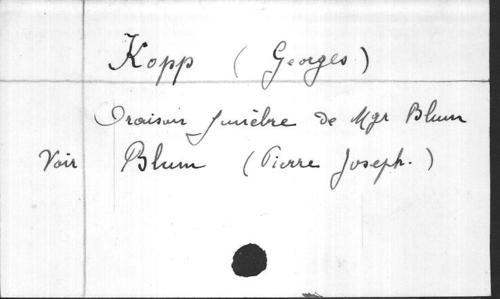 Kopp (Georges)
Oraison funèbre de Mgr Blum
Voir Blum (Pierre Joseph.)